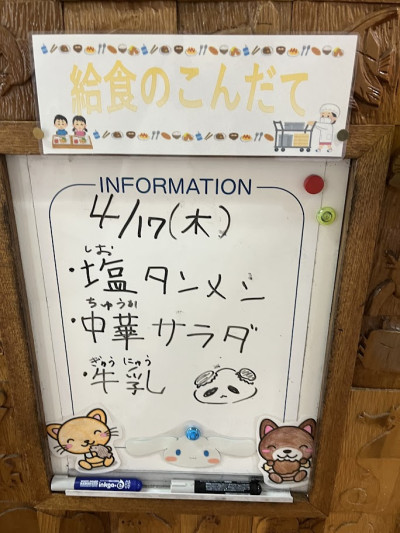 給食のこんだて
INFORMATION
4/17(木)
しお
・塩タンメン
ちゅうか
・中華サラダ
ぎゅうにゅう
・牛乳